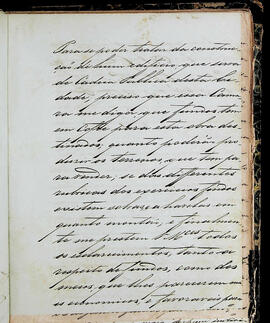 Para se poder tratar da construc-
çaõ de hum edificio que sirva
de Cadêa Publica desta Ci-
dade, preciso que essa Cama-
ra me diga, que fundos tem
em Cofre para esta obra des-
tinados, quanto poderáõ pro-
duzir os terrenos, que tem para
vender, se dos differentes
rubricas dos exercicios findos
existem sobras, haveres em
quanto montaõ, e finalmen-
te me prestem V Mces todos
os esclarecimentos, tanto a
respeito de fundos, como dos
meios, que lhes parecerem ma-
is economicos, e favoraveis para